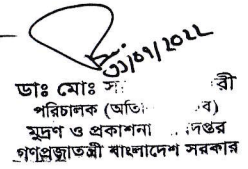 ৩১/০৭/২০২২
ডাঃ মোঃ স
রী
পরিচালক (অতিঃ ব)
মুদ্রণ ও প্রকাশনা দপ্তর
গণপ্রজাতন্ত্রী বাংলাদেশ সরকার